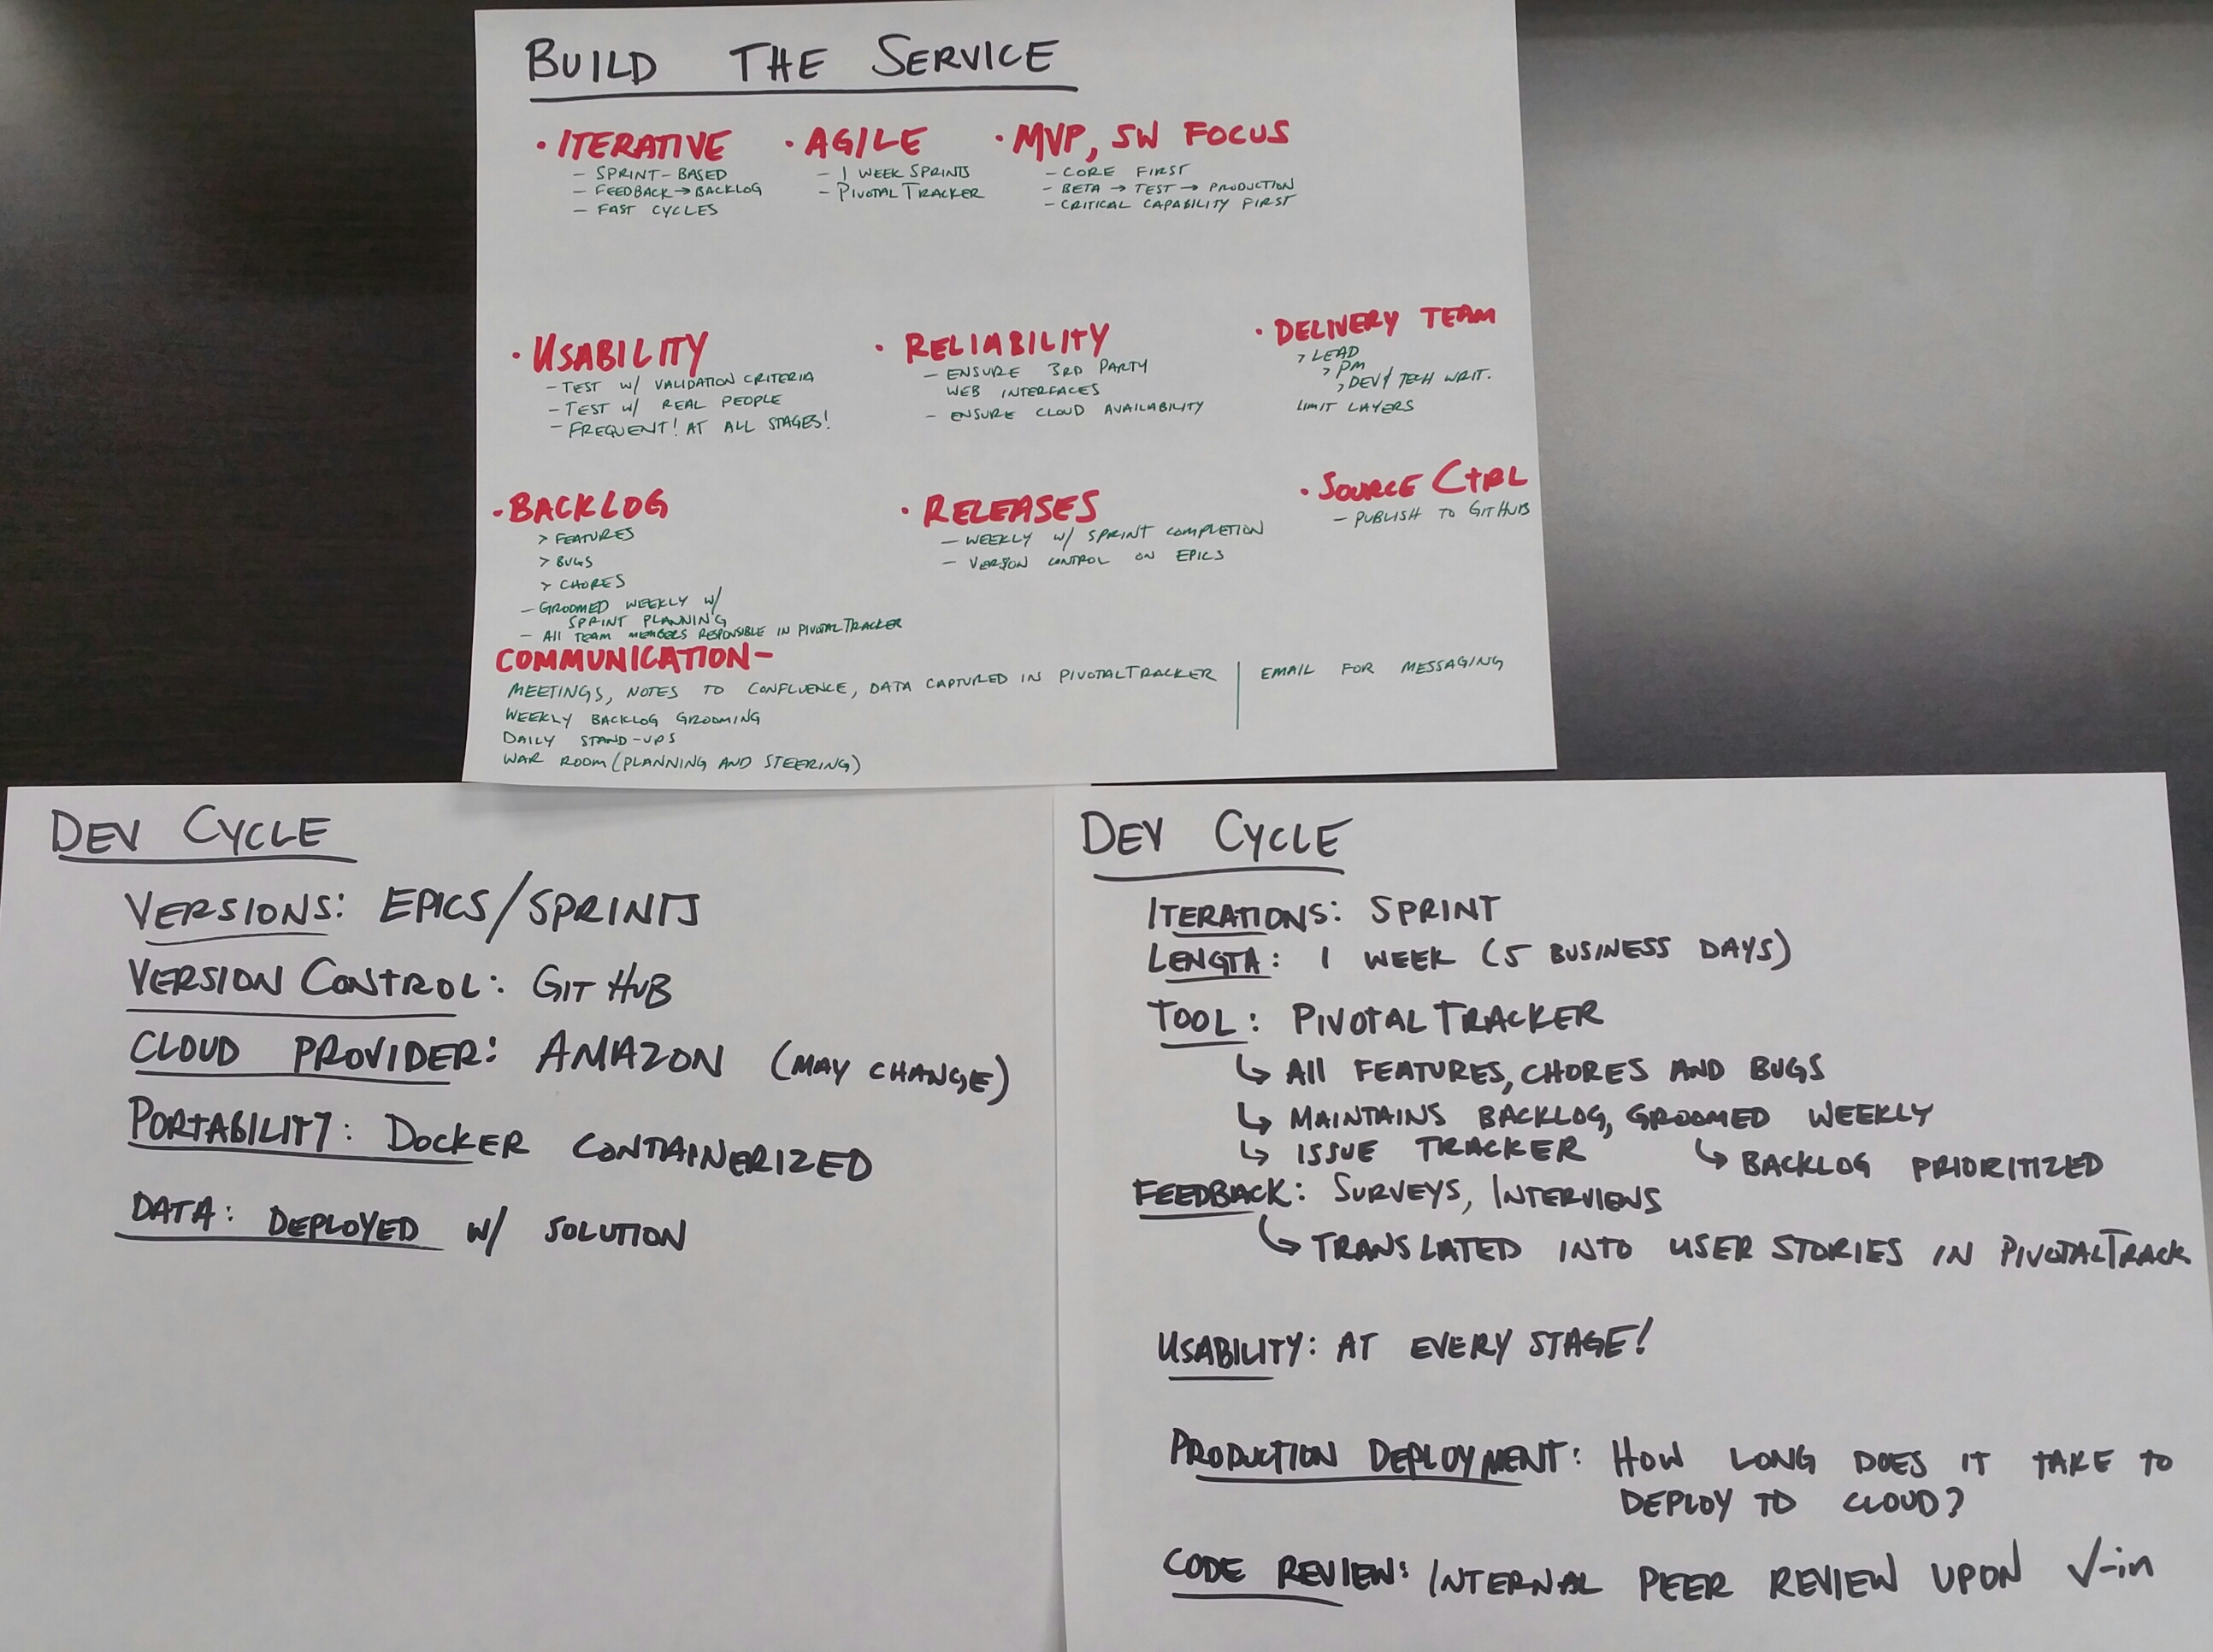 BUILD THE SERVICE
• ITERATIVE
- SPRINT-BASED
- FEEDBACK → BACKLOG
- FAST CYCLES
• AGILE
- 1 WEEK SPRINTS
- PIVOTAL TRACKER
• MVP, SW FOCUS
- CORE FIRST
- BETA → TEST → PRODUCTION
- CRITICAL CAPABILITY FIRST
• USABILITY
- TEST W/ VALIDATION CRITERIA
- TEST W/ REAL PEOPLE
- FREQUENT! AT ALL STAGES!
• RELIABILITY
- ENSURE 3RD PARTY
WEB INTERFACES
- ENSURE CLOUD AVAILABILITY
• DELIVERY TEAM
> LEAD
> PM
> DEV & TECH WRIT.
LIMIT LAYERS
• BACKLOG
> FEATURES
> BUGS
> CHORES
- GROOMED WEEKLY W/
SPRINT PLANNING
- All TEAM MEMBERS RESPONSIBLE IN PIVOTALTRACKER
• RELEASES
- WEEKLY W/ SPRINT COMPLETION
- VERSION CONTROL ON EPICS
• SOURCE CTRL
- PUBLISH TO GITHUB
COMMUNICATION-
MEETINGS, NOTES TO CONFLUENCE, DATA CAPTURED IN PIVOTALTRACKER | EMAIL FOR MESSAGING
WEEKLY BACKLOG GROOMING
DAILY STAND-UPS
WAR ROOM (PLANNING AND STEERING)
DEV CYCLE
VERSIONS: EPICS/SPRINTS
VERSION CONTROL: GITHUB
CLOUD PROVIDER: AMAZON (MAY CHANGE)
PORTABILITY: DOCKER CONTAINERIZED
DATA: DEPLOYED W/ SOLUTION
DEV CYCLE
ITERATIONS: SPRINT
LENGTH: 1 WEEK (5 BUSINESS DAYS)
TOOL: PIVOTAL TRACKER
↳ All FEATURES, CHORES AND BUGS
↳ MAINTAINS BACKLOG, GROOMED WEEKLY
↳ ISSUE TRACKER ↳ BACKLOG PRIORITIZED
FEEDBACK: SURVEYS, INTERVIEWS
↳ TRANSLATED INTO USER STORIES IN PIVOTALTRACK
USABILITY: AT EVERY STAGE!
PRODUCTION DEPLOYMENT: HOW LONG DOES IT TAKE TO
DEPLOY TO CLOUD?
CODE REVIEW: INTERNAL PEER REVIEW UPON √-in